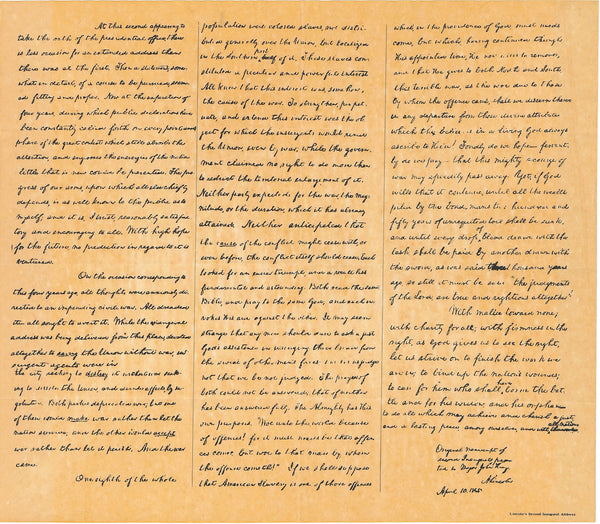 At this second appearing to
take the oath of the presidential office, there
is less occasion for an extended address than
there was at the first. Then a statement, some-
what in detail, of a course to be pursued, seem-
ed fitting and proper. Now, at the expiration of
four years, during which public declarations have
been constantly called forth on every point and
phase of the great contest which still absorbs the
attention, and engrosses the energies of the nation,
little that is new could be presented. The pro-
gress of our arms, upon which all else chiefly
depends, is as well known to the public as to
myself; and it is, I trust, reasonably satisfac-
tory and encouraging to all. With high hope
for the future, no prediction in regard to it is
ventured.
On the occasion corresponding to
this four years ago, all thoughts were anxiously di-
rected to an impending civil war. All dreaded
it ~ all sought to avert it. While the inaugeral
address was being delivered from this place, devoted
altogether to saving the Union without war, in
surgent agents were in
the city seeking to destroy it without war ~ seek-
ing to dissole the Union, and divide effects, by ne-
gotiation. Both parties deprecated war; but one
of them would make war rather than let the
nation survive; and the other would accept
war rather than let it perish. And the war
came.
One eighth of the whole
population were colored slaves, not distri-
buted generally over the Union, but localized
in the Southern part of it. These slaves con-
stituted a peculiar and powerful interest.
All knew that this interest was, somehow,
the cause of the war. To strengthen, perpet-
uate, and extend this interest was the ob-
ject for which the insurgents would rend
the Union, even by war; while the govern-
ment claimed no right to do more than
to restrict the territorial enlargement of it.
Neither party expected for the war, the mag-
nitude, or the duration, which it has already
attained. Neither anticipated that
the cause of the conflict might cease with, or
even before, the conflict itself should cease. Each
looked for an easier triumph, and a result less
fundamental and astounding. Both read the same
Bible, and pray to the same God; and each in-
vokes His aid against the other. It may seem
strange that any men should dare to ask a just
God's assistance in wringing their bread from
the sweat of other men's faces; but let us judge
not that we be not judged. The prayers of
both could not be answered; that of neither
has been answered fully. The Almighty has His
own purposes. "Woe unto the world because
of offences! for it must needs be that offen-
ces come; but woe to that man by whom
the offence cometh!" If we shall suppose
that American Slavery is one of those offences
which, in the providence of God, must needs
come, but which, having continued through
His appointed time, He now wills to remove,
and that He gives to both North and South,
this terrible war, as the woe due to those
by whom the offence came, shall we discern there-
in any departure from those divine attributes
which the believers in a Living God always
ascribe to Him? Fondly do we hope ~ fervent-
ly do we pray ~ that this mighty scourge of
war may speedily pass away. Yet, if God
wills that it continue, until all the wealth
piled by the bond-man's two hundred and
fifty years of unrequited toil shall be sunk,
and until every drop of blood drawn with the
lash, shall be paid by another drawn with
the sword, as was said three thousand years
ago, so still it must be said "the judgments
of the Lord, are true and righteous altogether"
With malice toward none;
with charity for all; with firmness in the
right, as God gives us to see the right,
let us strive on to finish the work we
are in; to bind up the nation's wounds;
to care for him who shall have borne the bat-
tle, and for his widow, and his orphan ~
to do all which may achieve and cherish a just,
and a lasting peace, among ourselves, and with all nations.
Original manuscript of
second Inaugeral presen-
ted to Major John Hay
A. Lincoln
April 10, 1865
Lincoln's Second Inaugural Address